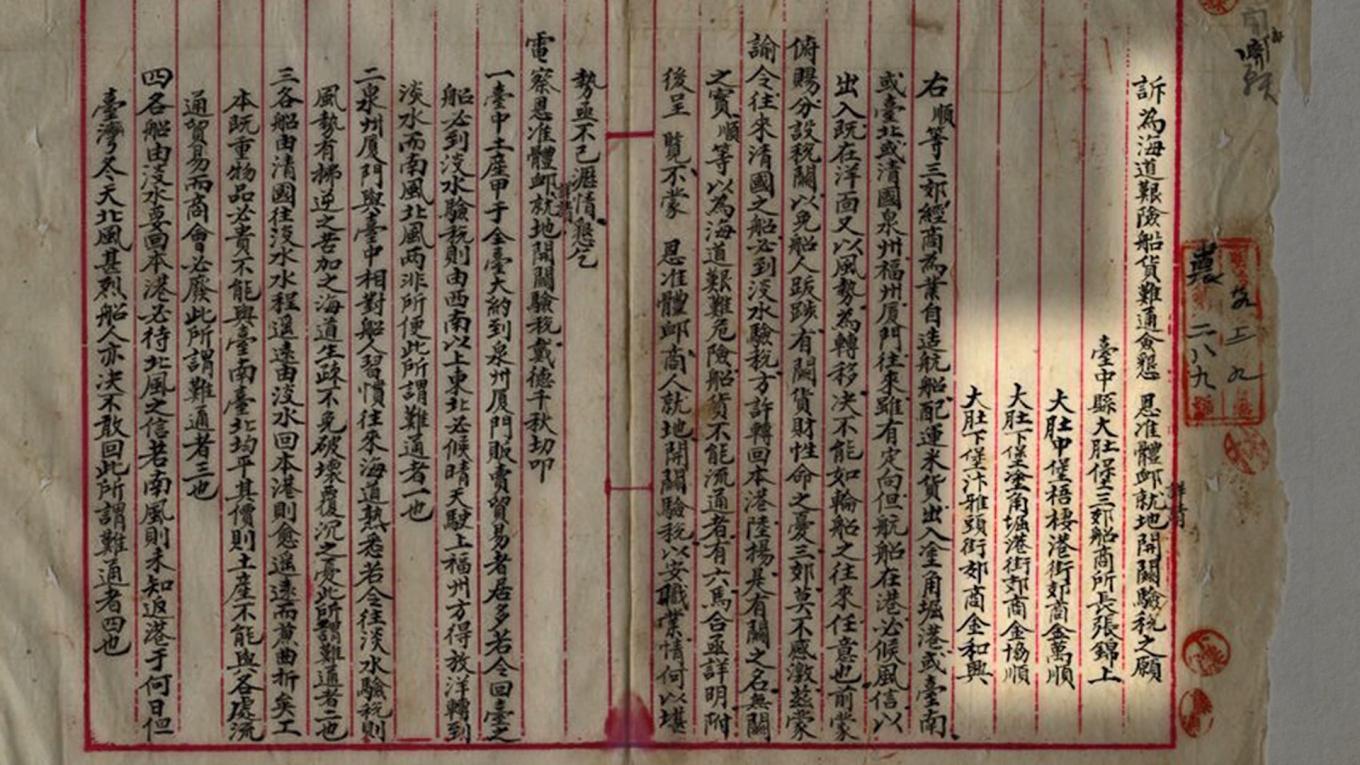 訴為海道艱險船貨難通僉懇　恩准體卹就地開關驗税之願
臺中縣大肚堡三郊船商所長張錦上
大肚中堡梧棲港街郊商金萬順
大肚下堡塗角堀港街郊商金協順
大肚下堡汴雅頭街郊商金和興
右順等三郊經商為業自造航船配運米貨出入塗角堀港或臺南
或臺北或清國泉州福州厦門往來雖有定向但航船在港必候風信以
出入既在洋面又以風勢為轉移决不能如輪船之往來任意也前蒙
俯賜分設税關以免船人跋踄有関貨財性命之憂三郊莫不感激茲蒙
諭令往來清國之船必到淡水驗税方許轉回本港陸揚是有關之名無關
之實順等以為海道艱難危險船貨不能流通者有六焉合亟詳明附
後呈　覽不蒙　恩准體卹商人就地開關驗税以安職業情何以堪
勢亟不已瀝情懇乞
電察恩准體卹就地開關驗税戴德千秋切叩
一臺中土産甲于全臺大約到泉州厦門販賣貿易者居多若令回臺之
船必到淡水驗税則由西南以上東北必候晴天駛上福州方得放洋轉到
淡水而南風北風两非所便此所謂難通者一也
二泉州厦門與臺中相對船人習慣往來海道熟悉若令往淡水驗税則
風勢有拂逆之苦加之海道生踈不免破壞覆沉之憂此所謂難通者二也
三各船由清國往淡水水程遥遠由淡水回本港則愈遥遠而黄曲折矣工
本既重物品必貴不能與臺南臺北均平其價則土産不能與各處流
通貿易而商會必廢此所謂難通者三也
四各船由淡水要回本港必待北風之信若南風則未知返港于何日但
臺灣冬天北風甚烈船人亦决不敢回此所謂難通者四也
二八九